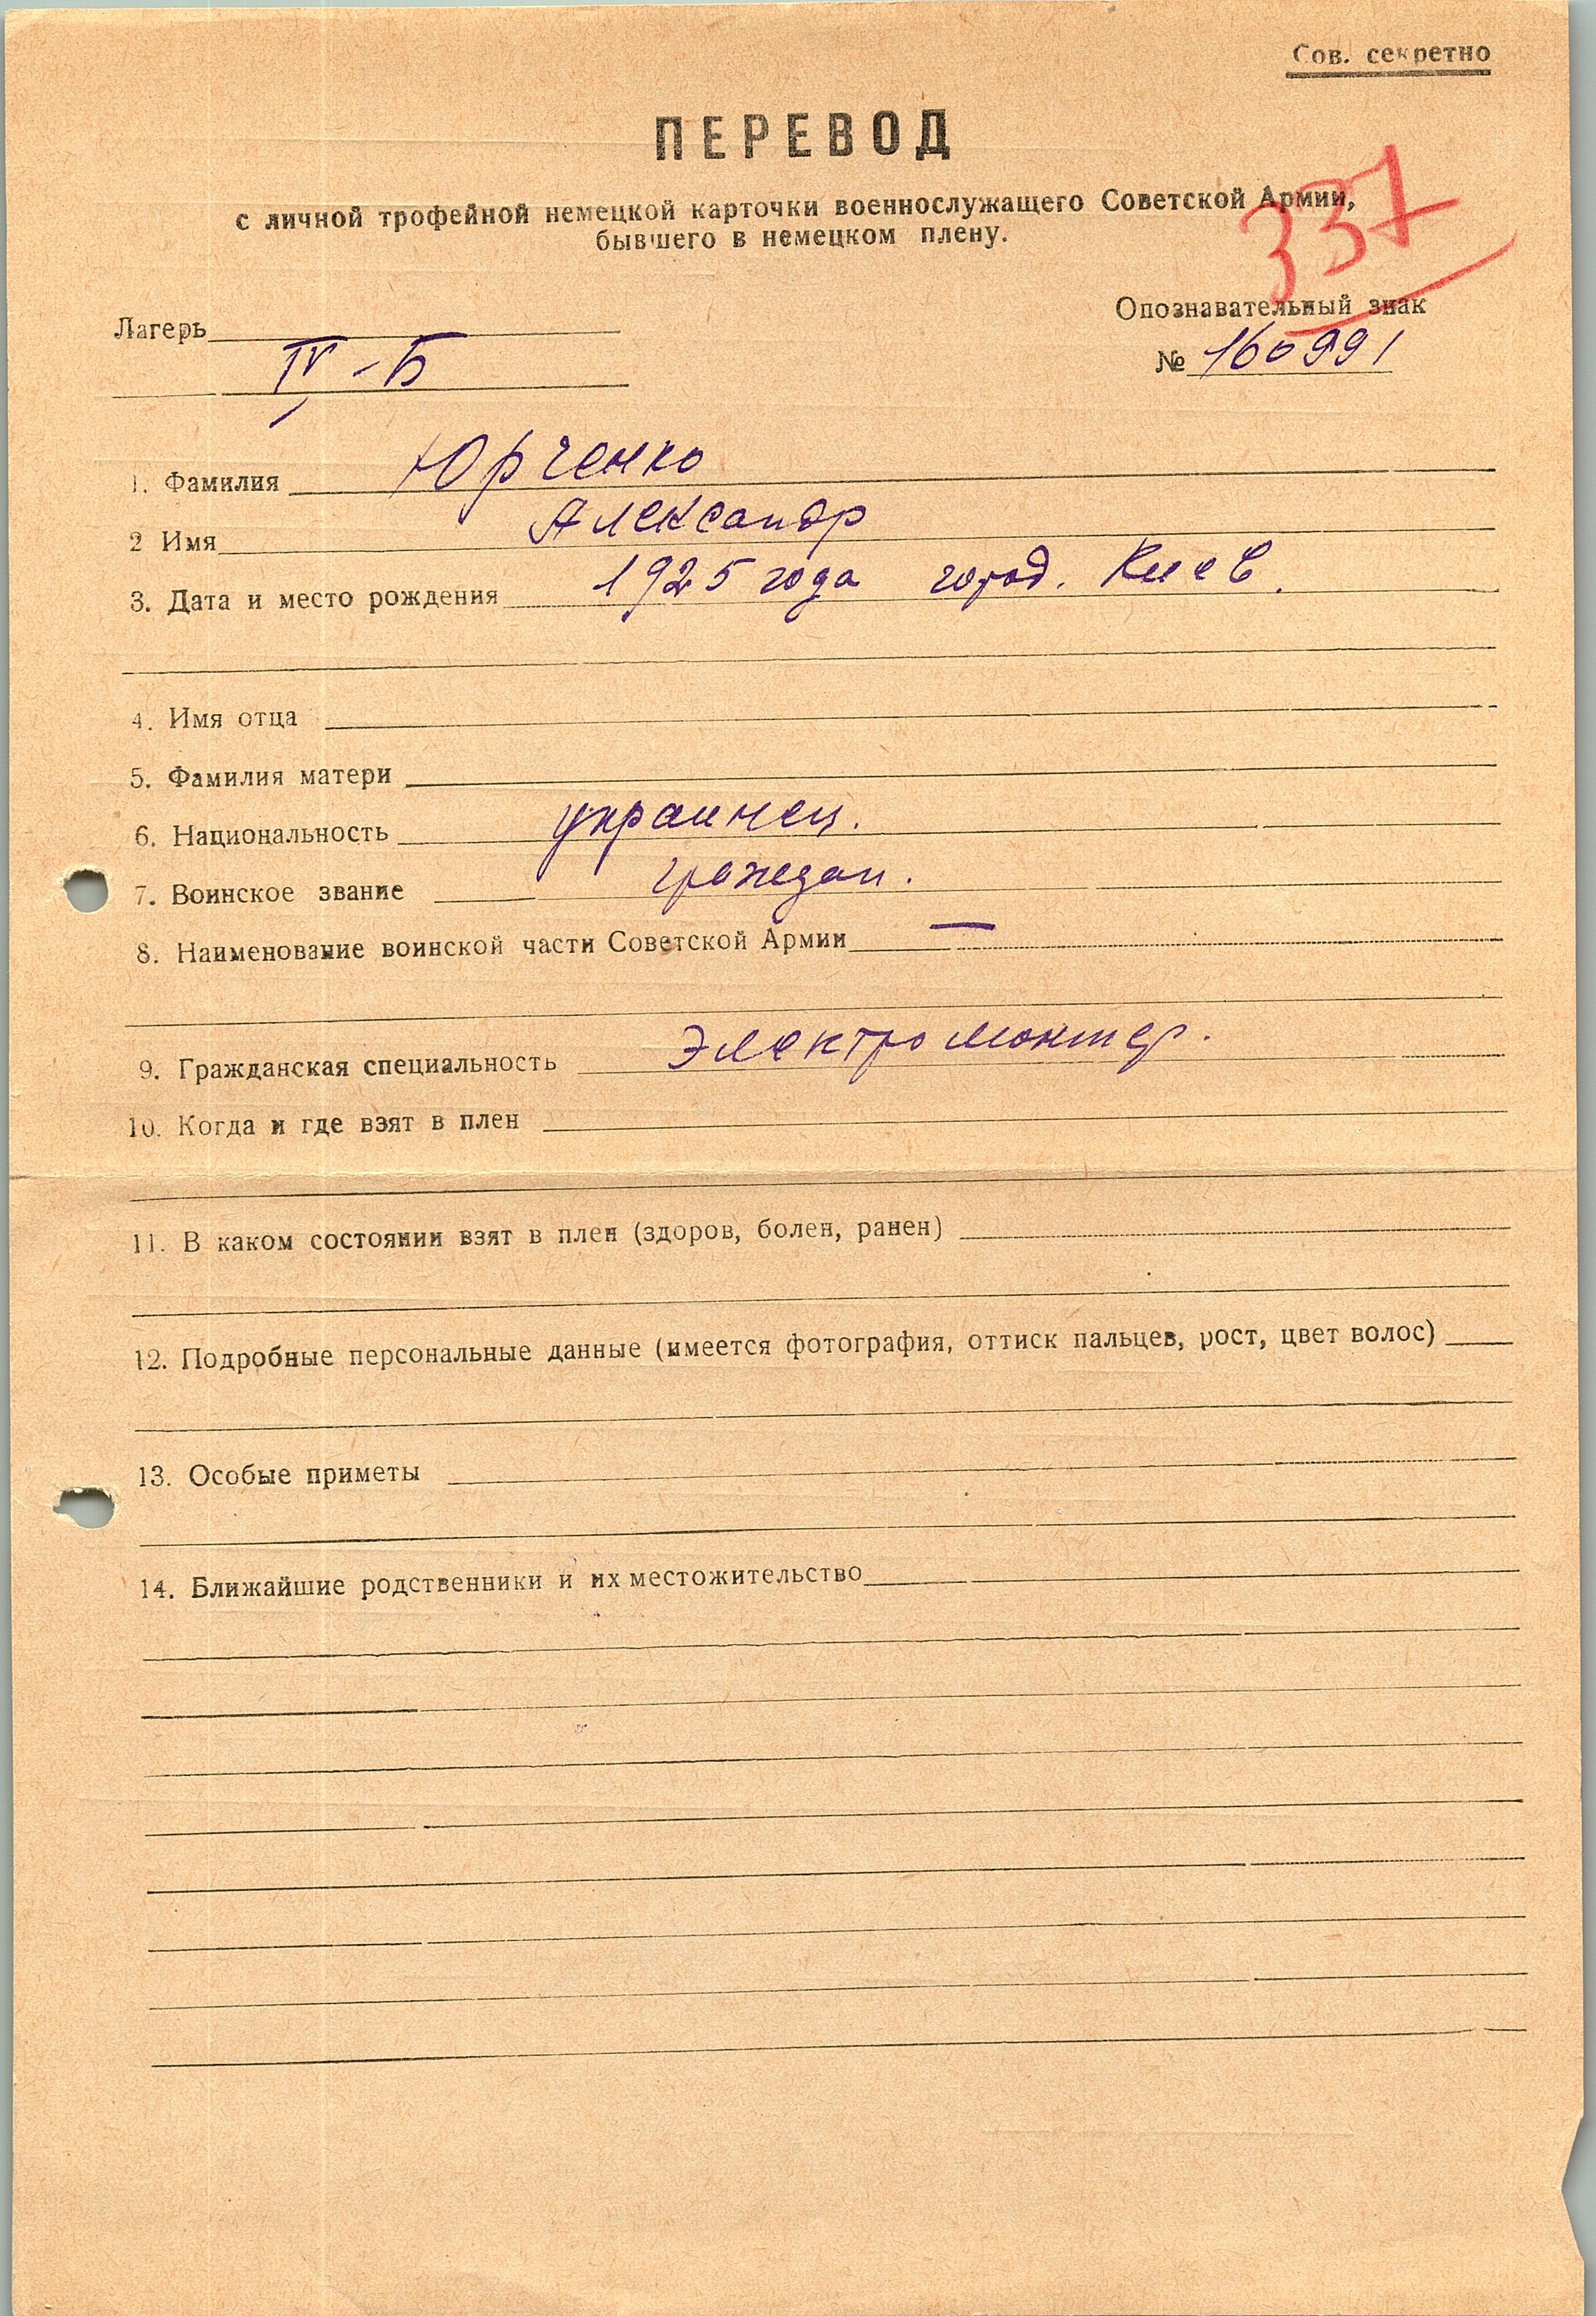 Сов. секретно
ПЕРЕВОД
с личной трофейной немецкой карточки военнослужащего Советской Армии,
бывшего в немецком плену.
337
Лагерь
Опознавательный знак
IV - Б
№ 160991
1. Фамилия Юрченко
2 Имя Александр
3. Дата и место рождения 1925 года город. Киев.
4. Имя отца
5. Фамилия матери
6. Национальность украинец.
7. Воинское звание граждан.
8. Наименование воинской части Советской Армии —
9. Гражданская специальность Электромонтер.
10. Когда и где взят в плен
11. В каком состоянии взят в плен (здоров, болен, ранен)
12. Подробные персональные данные (имеется фотография, оттиск пальцев, рост, цвет волос)
13. Особые приметы
14. Ближайшие родственники и их местожительство